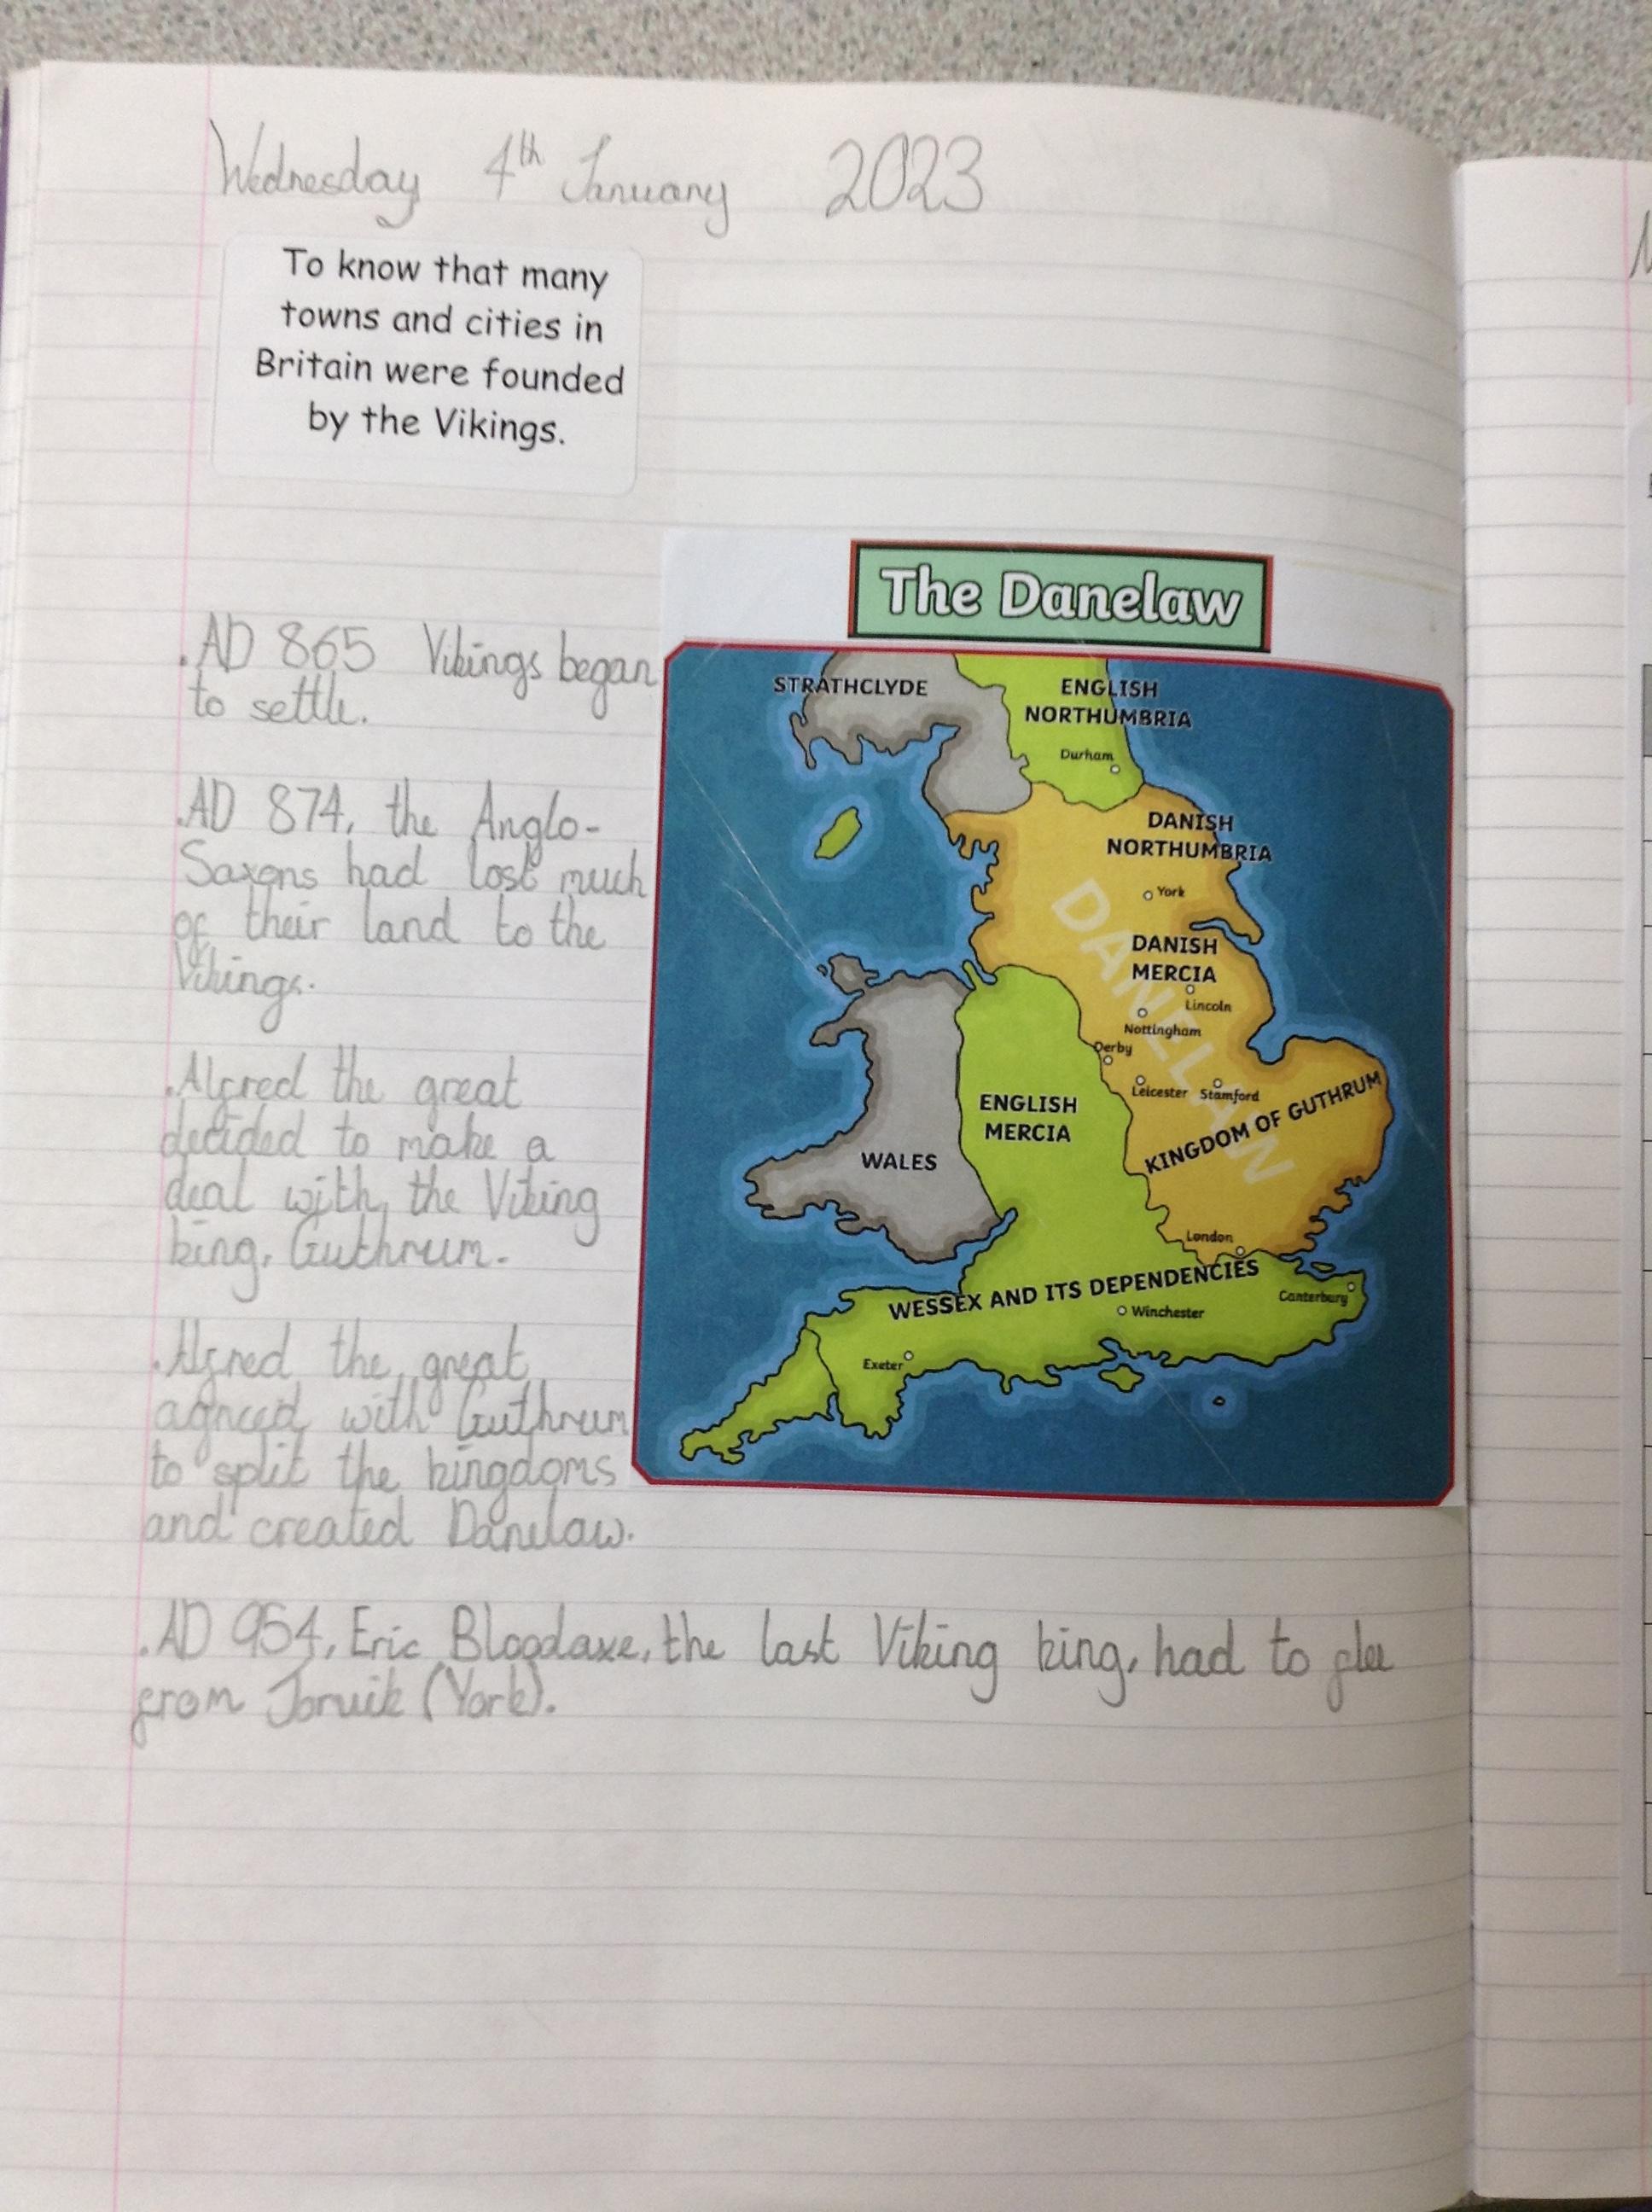 Wednesday 4th January 2023
To know that many
towns and cities in
Britain were founded
by the Vikings.
The Danelaw
.AD 865 Vikings began
to settle.
.AD 874, the Anglo-
Saxons had lost much
of their land to the
Vikings.
.Alfred the great
decided to make a
deal with the Viking
king, Guthrum.
.Alfred the great
agreed with Guthrum
to split the kingdoms
and created Danelaw.
.AD 954, Eric Bloodaxe, the last Viking king, had to flee
from Jorvik (York).
STRATHCLYDE
ENGLISH
NORTHUMBRIA
Durham
DANISH
NORTHUMBRIA
York
DANELAW
DANISH
MERCIA
Lincoln
Nottingham
Derby
Leicester
Stamford
KINGDOM OF GUTHRUM
ENGLISH
MERCIA
WALES
London
WESSEX AND ITS DEPENDENCIES
Canterbury
Winchester
Exeter